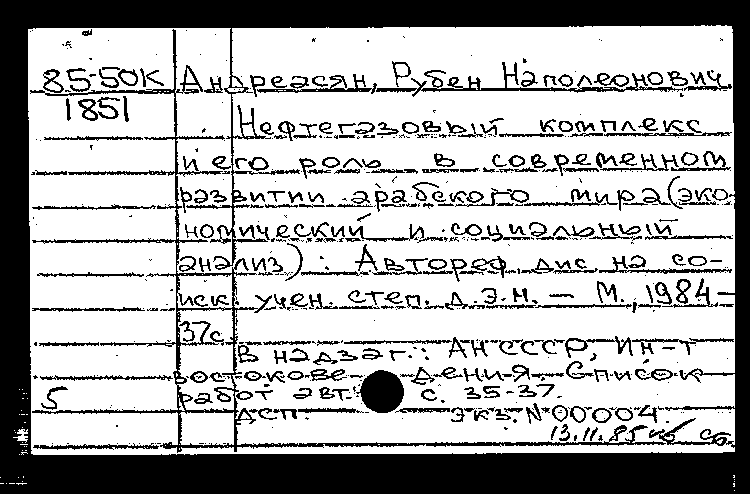 85-50К Андреасян, Рубен Наполеонович.
1851
Нефтегазовый комплекс
и его роль в современном
развитии арабского мира (эко-
номический и социальный
анализ) : Автореф. дис. на со-
иск. учен. степ. д.э.н. — М., 1984 —
37с.
В надзаг.: АН СССР, Ин-т
востокове- дени-я. Список
5 работ авт.: с. 35-37.
ДСП. экз. №00004.
13.11.85